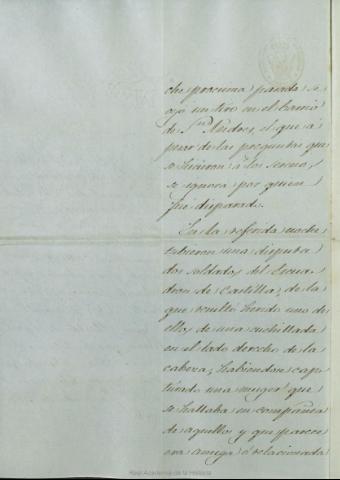 che procsima pasada se
oyó un tiro en el barrio
de Sn. Andres, el que á
pesar de las preguntas que
se hicieron á los serenos,
se ignora por quien
fué disparado.
En la referida noche
tubieron una disputa
dos soldados del Escua
dron de Castilla, de la
que resultó herido uno de
ellos de una cuchillada
en el lado derecho de la
cabeza, habiendose cap
turado una muger que
se hallaba en compañia
de aquellos y que parece
era amiga ó relacionada
Real Academia de la Historia